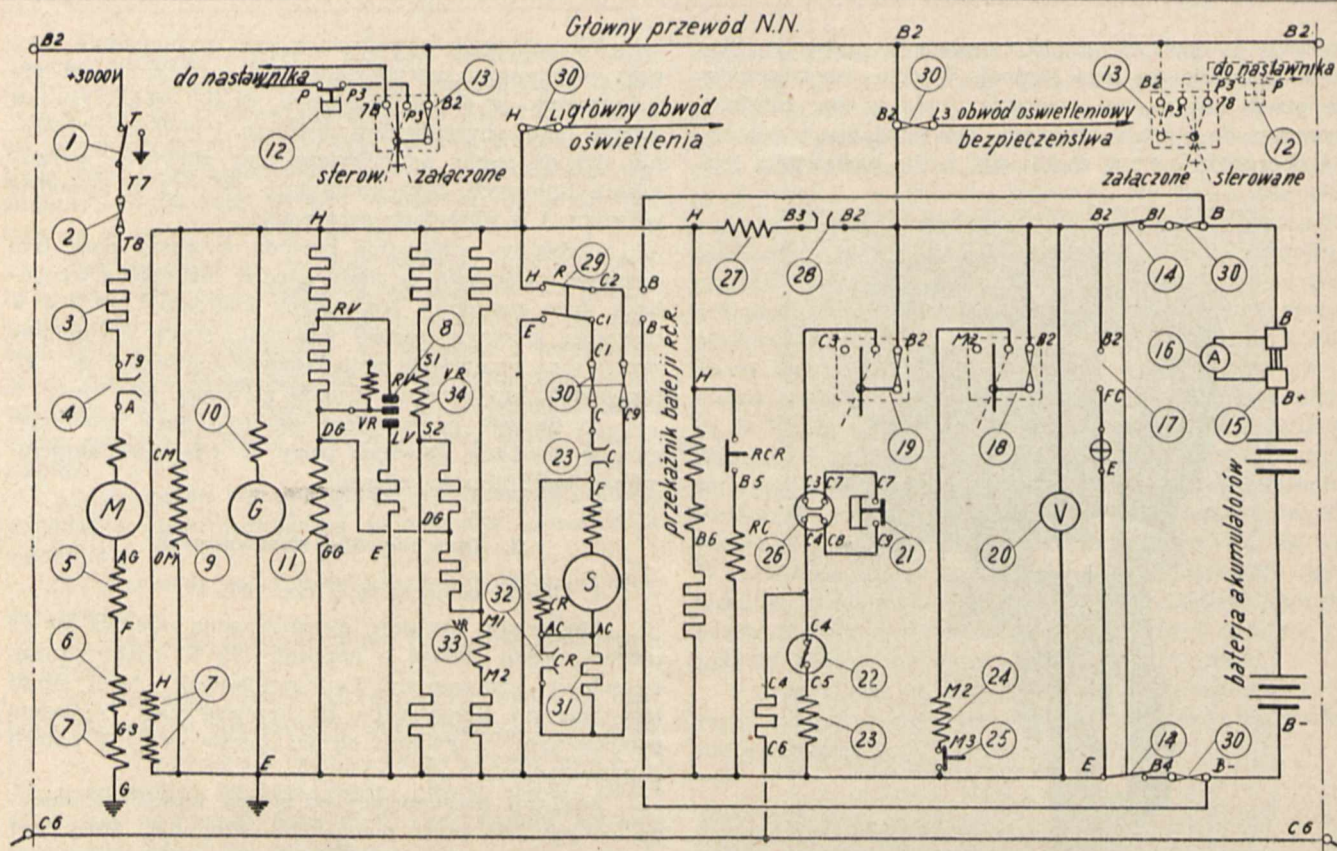 Główny przewód N.N.
B2
B2
B2
+3000V
do nastawnika
P
P3
7B
P3
B2
13
12
sterow.
załączone
30
H
L1
główny obwód
oświetlenia
30
B2
L3
obwód oświetleniowy
bezpieczeństwa
13
B2
P3
7B
do nastawnika
P3
P
12
załączone
sterowane
T
1
T7
2
T8
3
T9
4
A
M
AG
5
F
6
G3
7
G
H
7
CM
OM
9
10
G
E
H
RV
8
RV
VR
LV
DG
11
GG
E
S1
VR
34
S2
DG
VR
33
M1
M2
H
R
29
C2
E
C1
C1
30
C
C9
23
C
F
S
32
CR
AC
AC
CR
31
B
B
przekaźnik baterji RČR.
H
H
27
B3
B2
28
RCR
B5
B6
RC
C3
B2
19
C3
C7
C7
26
C4
C8
21
C9
C4
22
C5
23
C4
C6
M2
B2
18
M2
24
M3
25
20
V
B2
B1
B
14
30
B2
17
FC
E
B
16
A
15
B+
baterja akumulatorów
B-
E
14
B4
30
B-
C6
C6